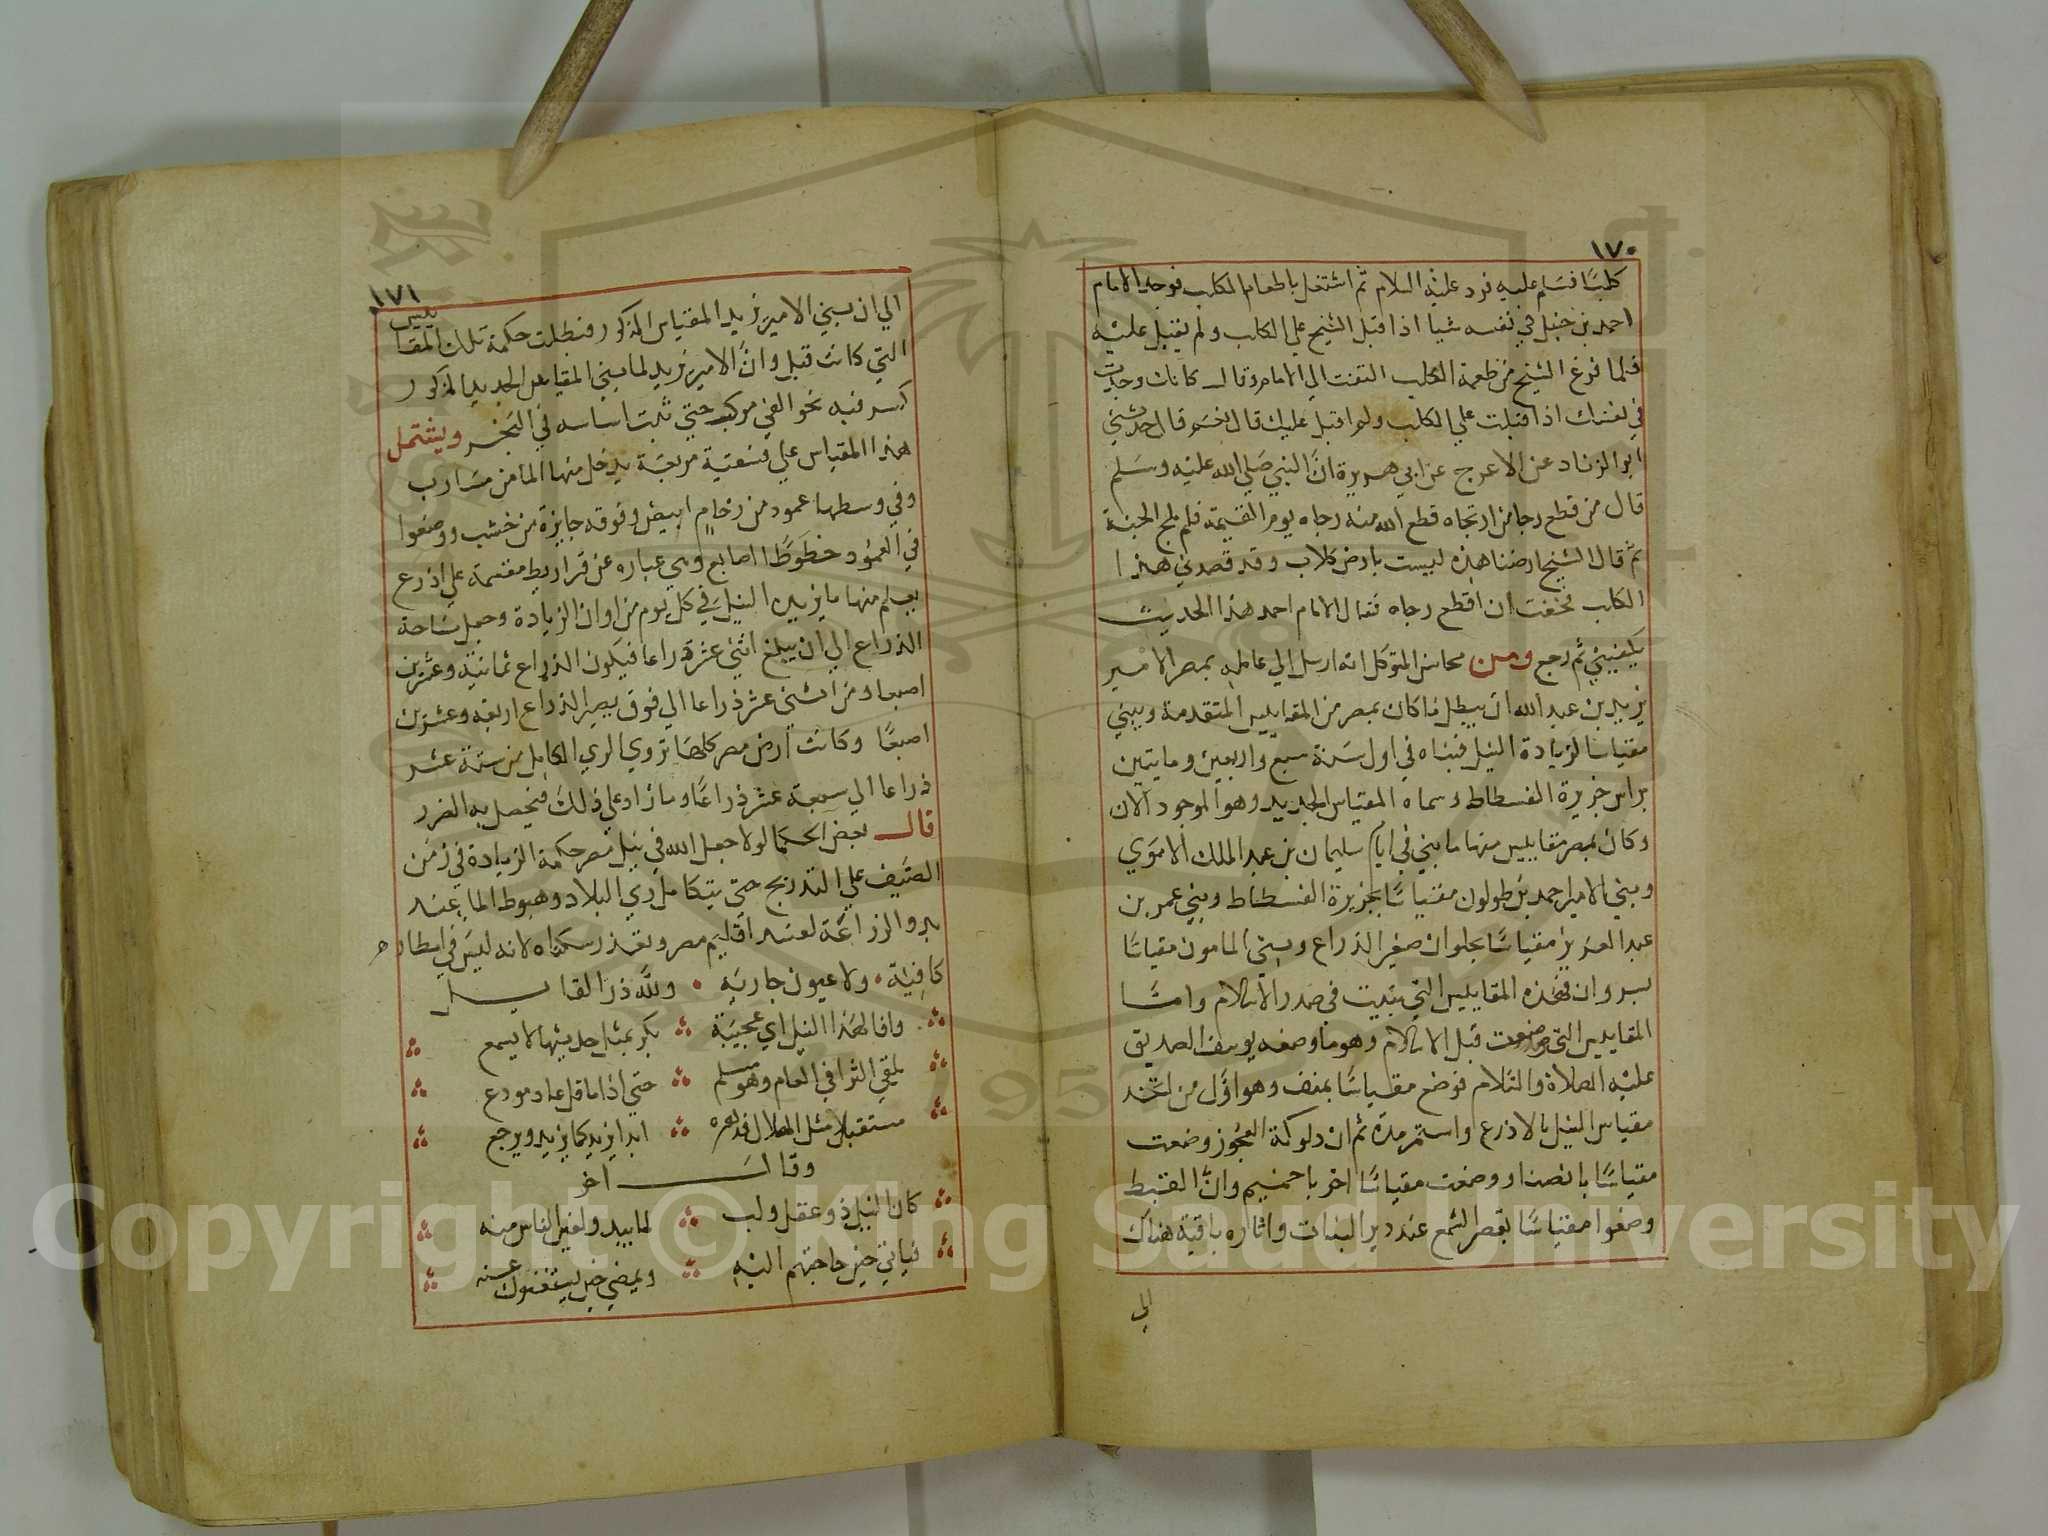 ١٧٠
كلبًا فسلم عليه فرد عليه السلام ثم اشتغل باطعام الكلب فوجد الامام
احمد بن حنبل في نفسه شيا اذا قبل الشيخ علي الكلب ولم يقبل عليه
فلما فرغ الشيخ من طعمة الكلب التفت الي الامام وقال كانك وجدت
في نفسك اذا قبلت علي الكلب ولم اقبل عليك قال نعم قال حدثني
ابو الزناد عن الاعرج عن ابي هريرة انَّ النبي صَلي الله عليه وسَلم
قال من قطع رجا من ارتجاه قطع الله منه رجاه يوم القيمة فلم يلج الجنة
ثم قال الشيخ ارضنا هذه ليست بارض كلاب وقد قصدني هذا
الكلب فخفت ان اقطع رجاه فقال الامام احمد هذا الحديث
يكفيني ثم رجع ومن محاسن المتوكل انه ارسل الي عامله بمصر الامير
يزيد بن عبد الله ان يبطل ما كان بمصر من المقاييس المتقدمة ويبني
مقياسا لزيادة النيل فبناه في اول سَنة سبع واربعين ومايتين
براس جزيرة الفسطاط وسماه المقياس الجديد وهو الموجود الان
وكان بمصر مقاييس منها ما بني في ايام سليمان بن عبد الملك الاموي
وبني الامير احمد بن طولون مقياسًا بجزيرة الفسطاط وبني عمر بن
عبد العزيز مقياسًا بحلوان صغير الذراع وبني المامون مقياسًا
بسروان فهذه المقاييس التي بنيت في صدر الاسلام وامَّا
المقاييس التي وضعت قبل الاسلام وهو ما وضعه يوسف الصديق
عليه الصلاة والسَّلام فوضع مقياسًا بمنف وهو اوَّل من اتخذ
مقياس النيل بالاذرع واستمر مدة ثم ان دلوكة العجوز وضعت
مقياسًا بانصنا ووضعت مقياسًا اخر باخميم وانَّ القبط
وضعوا مقياسًا بقصر الشمع عند دير البنات واثاره باقية هناك
الي
١٧١
الي ان بني الامير يزيد المقياس المذكور فبطلت حكمة تلك المقاييس
التي كانت قبل وانَّ الامير يزيد لما بني المقياس الجديد المذكور
كسر فيه نحو الفي مركب حتي ثبت اساسه في البحر ويشتمل
هذا المقياس علي فسقية مربعة يدخل منها الما من مسارب
وفي وسطها عمود من رخام ابيض وفوقه جايزة من خشب ووضعوا
في العمود خطوطًا اصابع وهي عباره عن قراريط مقسمة علي اذرع
يعلم منها ما يزيده النيل في كل يوم من اوان الزيادة وجعل مسَاحة
الذراع الي ان يبلغ اثني عشر ذراعا فيكون الذراع ثمانية وعشرين
اصبعا ومن اثنى عشر ذراعا الي فوق يصير الذراع اربعة وعشرين
اصبعًا وكانت ارض مصر كلها تروي الري الكامل من ستة عشر
ذراعا الي سبعة عشر ذراعًا وما زاد علي ذلك فيحصل به الضرر
قال بعض الحكما لولا جعل الله في نيل مصر حكمة الزيادة في زمن
الصَّيف علي التدريج حتي يتكامل ري البلاد وهبوط الما عند
بدو الزراعة لفسد اقليم مصر وتعذر سكناه لانه ليسَ في امطار
كافية ولا عيون جارية ولله در القايل
واها لهذا النيل اي عجيبة بكر بمثل حديثها لا يسمع
يلقي الثرا في العام وهو مسلم حتي اذا ما قل عاد مودع
مستقبلا مثل الهلال فدهره ابدا يزيد كما يزيد ويرجع
وقالَ اخر
كان النيل ذو عقل ولب لما يبدو لخير الناس منه
فياتي حين حاجتهم اليه ويمضي حين يستغنون عنه
Copyright © King Saud University
1957